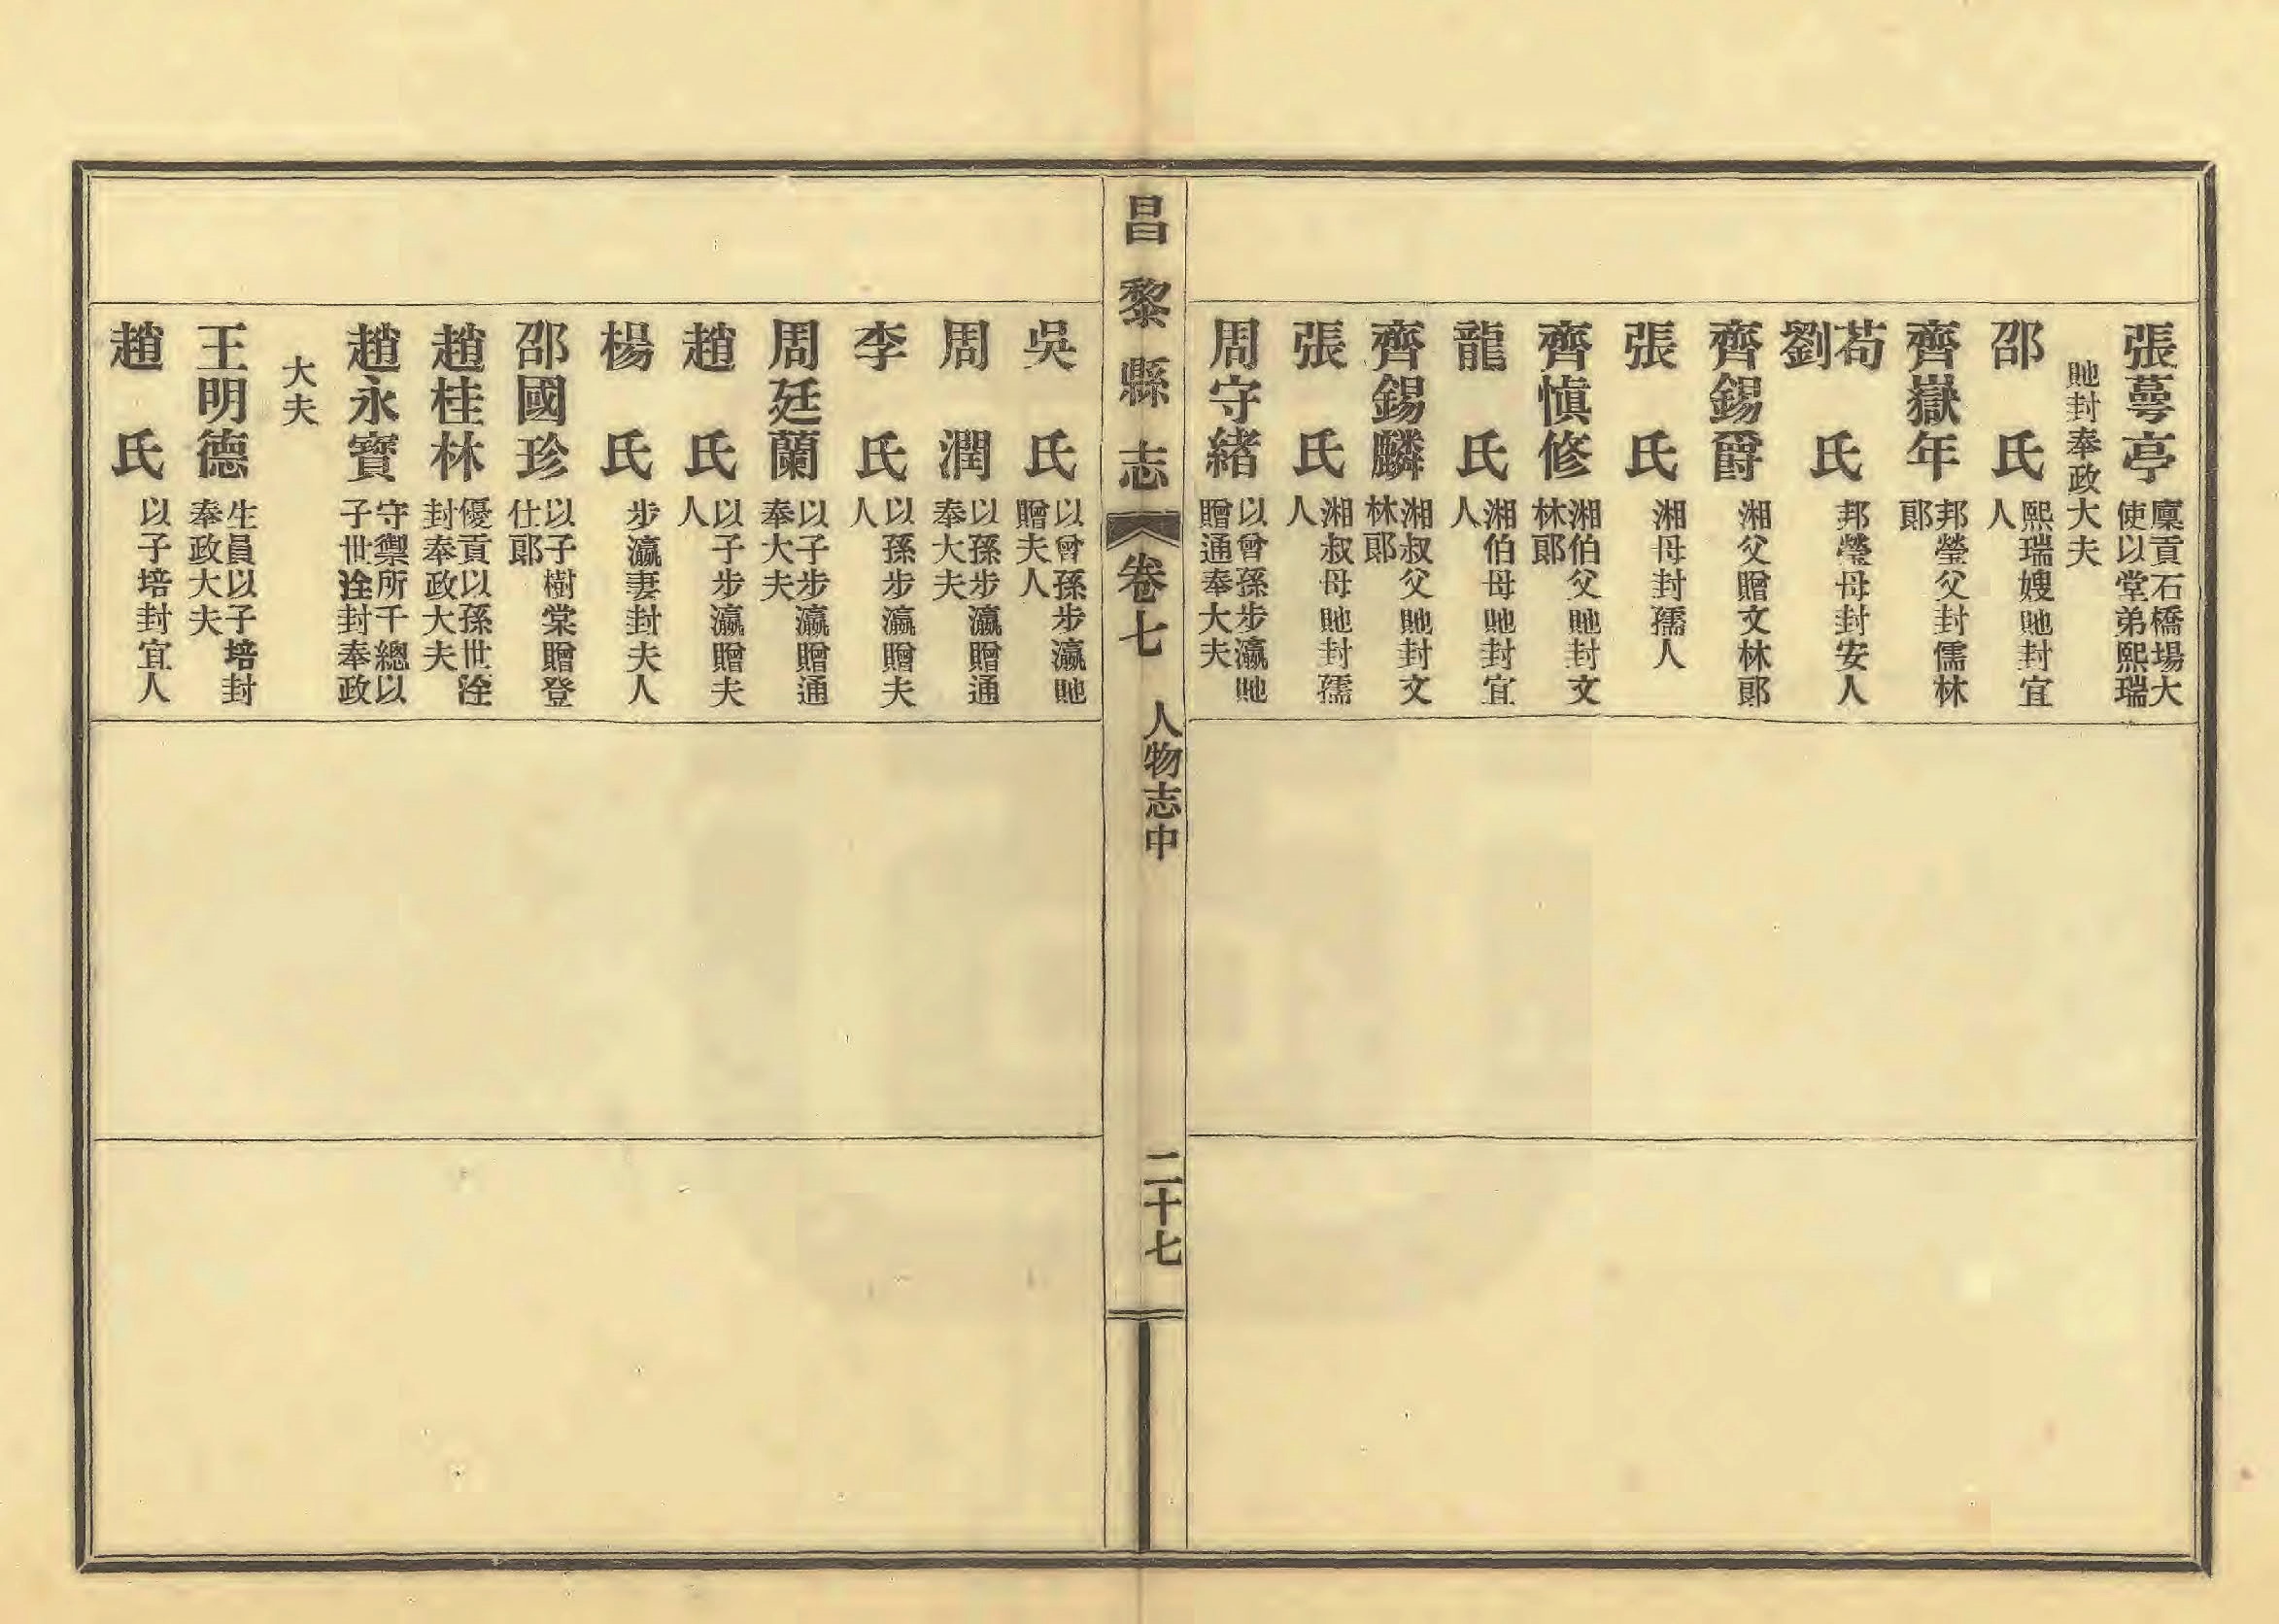 張蕚亭 廩貢石橋場大使以堂弟熙瑞
貤封奉政大夫
邵氏 熙瑞嫂貤封宜人
齊嶽年 邦瑩父封儒林郎
苟劉氏 邦瑩母封安人
齊錫爵 湘父贈文林郎
張氏 湘母封孺人
齊慎修 湘伯父貤封文林郎
龍氏 湘伯母貤封宜人
齊錫麟 湘叔父貤封文林郎
張氏 湘叔母貤封孺人
周守緒 以曾孫步瀛貤贈通奉大夫
昌黎縣志 卷七 人物志中 二十七
吳氏 以曾孫步瀛貤贈夫人
周潤 以孫步瀛贈通奉大夫
李氏 以孫步瀛贈夫人
周廷蘭 以子步瀛贈通奉大夫
趙氏 以子步瀛贈夫人
楊氏 步瀛妻封夫人
邵國珍 以子樹棠贈登仕郎
趙桂林 優貢以孫世淦封奉政大夫
趙永寶 守禦所千總以子世淦封奉政
大夫
王明德 生員以子培封奉政大夫
趙氏 以子培封宜人